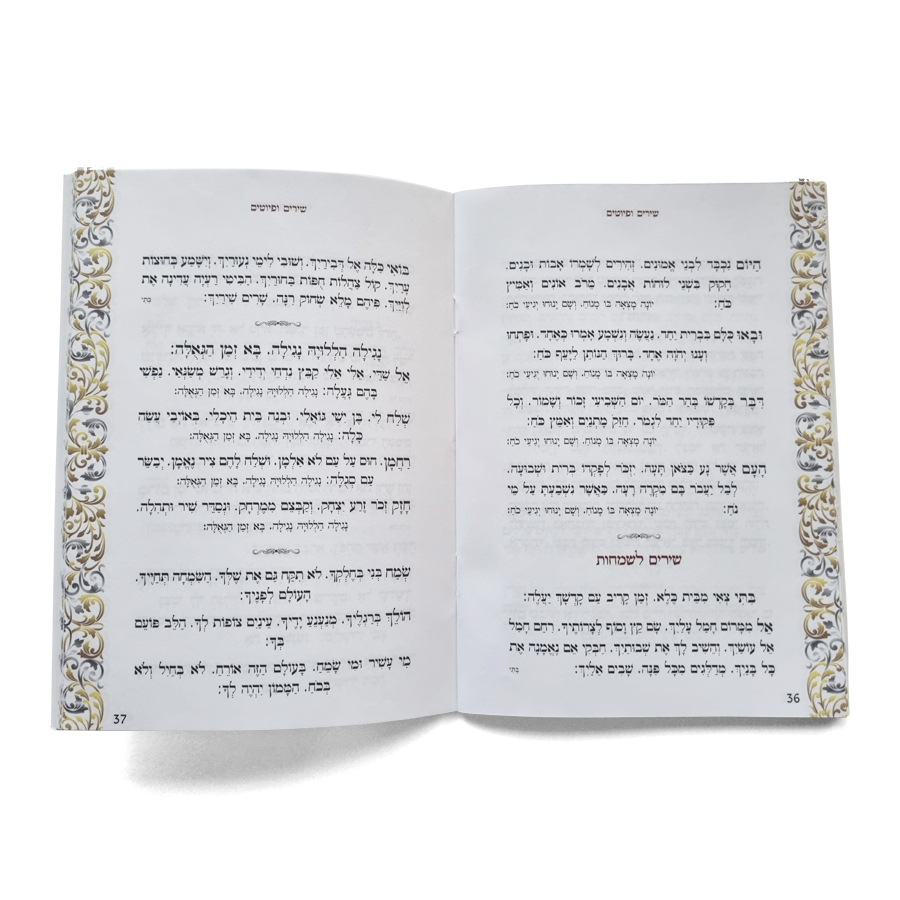 שירים ופיוטים
הַיּוֹם נִכְבָּד לִבְנֵי אֱמוּנִים. זְהִירִים לְשָׁמְרוֹ אָבוֹת וּבָנִים.
חָקוּק בִּשְׁנֵי לוּחוֹת אֲבָנִים. מֵרֹב אוֹנִים וְאַמִּיץ
כֹּחַ: יוֹנָה מָצְאָה בוֹ מָנוֹחַ. וְשָׁם יָנוּחוּ יְגִיעֵי כֹחַ:
וּבָאוּ כֻלָּם בִּבְרִית יַחַד. נַעֲשֶׂה וְנִשְׁמַע אָמְרוּ כְּאֶחָד. וּפָתְחוּ
וְעָנוּ יְהֹוָה אֶחָד. בָּרוּךְ הַנּוֹתֵן לַיָּעֵף כֹּחַ:
יוֹנָה מָצְאָה בוֹ מָנוֹחַ. וְשָׁם יָנוּחוּ יְגִיעֵי כֹחַ:
דִּבֶּר בְּקָדְשׁוֹ בְּהַר הַמֹּר. יוֹם הַשְּׁבִיעִי זָכוֹר וְשָׁמוֹר. וְכָל
פִּקּוּדָיו יַחַד לִגְמֹר. חַזֵּק מָתְנַיִם וְאַמֵּץ כֹּחַ:
יוֹנָה מָצְאָה בוֹ מָנוֹחַ. וְשָׁם יָנוּחוּ יְגִיעֵי כֹחַ:
הָעָם אֲשֶׁר נָע כַּצֹּאן תָּעָה. יִזְכֹּר לְפָקְדוֹ בְּרִית וּשְׁבוּעָה.
לְבַל יַעֲבָר בָּם מִקְרֵה רָעָה. כַּאֲשֶׁר נִשְׁבַּעְתָּ עַל מֵי
נֹחַ: יוֹנָה מָצְאָה בוֹ מָנוֹחַ. וְשָׁם יָנוּחוּ יְגִיעֵי כֹחַ:
שירים לשמחות
בִּתִּי צְאִי מִבֵּית כֶּלֶא. זְמַן קָרֵיב עִם קָדְשֵׁךְ יַעֲלֶה:
אֵל מִמְּרוֹם חָמַל עָלַיִךְ. שָׂם קֵץ וָסוֹף לְצָרוֹתַיִךְ. רַחֵם חָמַל
אֵל עוֹשַׂיִךְ. וְהֵשִׁיב לָךְ אֶת שְׁבוּתַיִךְ. חַבְּקִי אִם נֶאֱמָנָה אֶת
כָּל בָּנַיִךְ. מְדַלְּגִים מִכָּל פִּנָּה. שָׁבִים אֵלַיִךְ: בִּתִּי
36
שירים ופיוטים
בּוֹאִי כַּלָּה אֶל דְּבִירַיִךְ. וְשׁוּבִי לִימֵי נְעוּרַיִךְ. וְיִשָּׁמַע בְּחוּצוֹת
עָרַיִךְ. קוֹל צָהֳלוֹת חֻפּוֹת בַּחוּרַיִךְ. הַבִּיטִי רַעְיָה עֲדִינָה אֶת
לְוִיַּיִךְ. פִּיהֶם מָלֵא שְׂחוֹק רִנָּה. שָׁרִים שִׁירַיִךְ: בִּתִּי
נָגִילָה הַלְלוּיָהּ נָגִילָה. בָּא זְמַן הַגְּאֻלָּה:
אֵל שַׁדַּי. אֵלִי אֵלִי קַבֵּץ נִדְחֵי יְדִידַי. וְגָרֵשׁ מְשַׂנְאַי. נַפְשִׁי
בָּהֶם גָּעֲלָה: נָגִילָה הַלְלוּיָהּ נָגִילָה. בָּא זְמַן הַגְּאֻלָּה:
שְׁלַח לִי. בֶּן יִשַׁי גּוֹאֲלִי. וּבְנֵה בֵּית הֵיכָלִי. בְּאוֹיְבַי עֲשֵׂה
כָּלָה: נָגִילָה הַלְלוּיָהּ נָגִילָה. בָּא זְמַן הַגְּאֻלָּה:
רַחֲמָן. חוּס עַל עַם לֹא אַלְמָן. וּשְׁלַח לָהֶם צִיר נֶאֱמָן. יְבַשֵּׂר
עַם סְגֻלָּה: נָגִילָה הַלְלוּיָהּ נָגִילָה. בָּא זְמַן הַגְּאֻלָּה:
חָזָק זְכֹר זֶרַע יִצְחָק. וְקַבְּצֵם מִמֶּרְחָק. וּנְסַדֵּר שִׁיר וּתְהִלָּה.
נָגִילָה הַלְלוּיָהּ נָגִילָה. בָּא זְמַן הַגְּאֻלָּה:
שְׂמַח בְּנִי בְּחֶלְקְךָ. לֹא תִקַּח גַּם אֶת שֶׁלְּךָ. הַשִּׂמְחָה תְּחַיֶּיךָ.
הָעוֹלָם לְפָנֶיךָ:
הוֹלֵךְ בְּרַגְלֶיךָ. מְנַעְנֵעַ יָדֶיךָ. עֵינַיִם צוֹפוֹת לְךָ. הַלֵּב פּוֹעֵם
בְּךָ:
מִי עָשִׁיר וּמִי שָׂמֵחַ. בָּעוֹלָם הַזֶּה אוֹרֵחַ. לֹא בְּחַיִל וְלֹא
בְּכֹחַ. הַמָּמוֹן יִהְיֶה לְךָ:
37